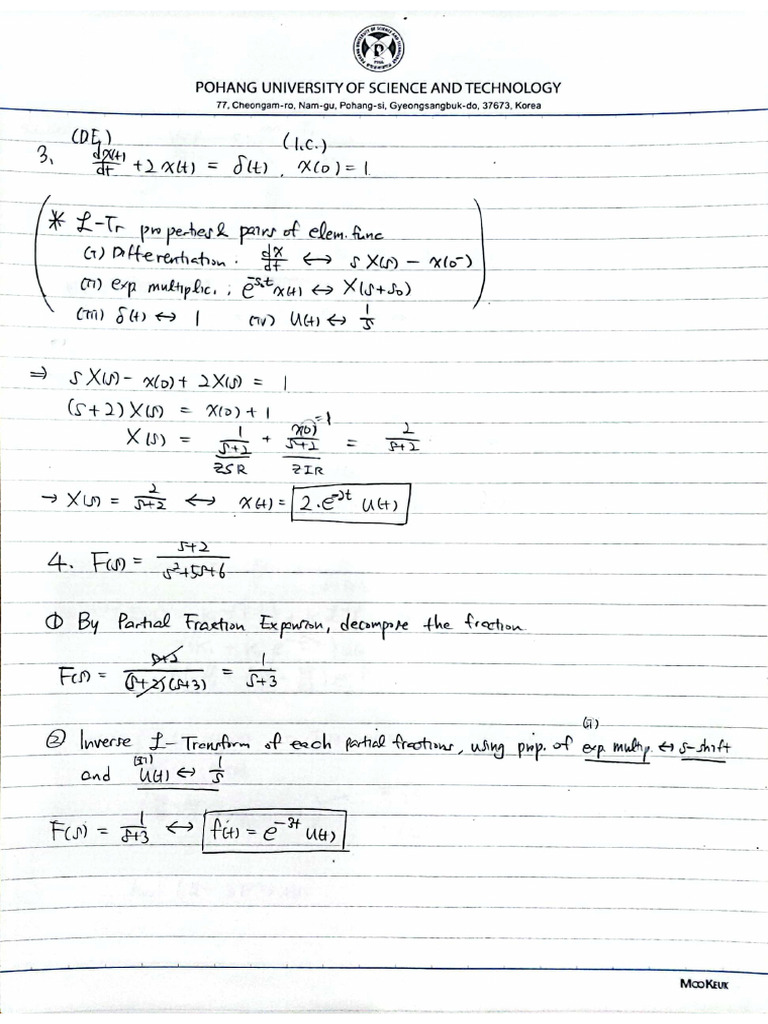 POHANG UNIVERSITY OF SCIENCE AND TECHNOLOGY
77, Cheongam-ro, Nam-gu, Pohang-si, Gyeongsangbuk-do, 37673, Korea
(DE) (I.C.)
3. dx(t)/dt + 2x(t) = δ(t), x(0) = 1
* ℒ-Tr properties & pairs of elem. func
(i) Differentiation. dx/dt ↔ sX(s) - x(0⁻)
(ii) exp multiplic. ; e^{-s₀t} x(t) ↔ X(s+s₀)
(iii) δ(t) ↔ 1 (iv) u(t) ↔ 1/s
⇒ sX(s) - x(0) + 2X(s) = 1
(s+2)X(s) = x(0) + 1
X(s) = 1/(s+2) + x(0)/(s+2) = 2/(s+2)
=1
ZSR ZIR
→ X(s) = 2/(s+2) ↔ x(t) = 2·e^{-2t} u(t)
4. F(s) = (s+2)/(s²+5s+6)
① By Partial Fraction Expansion, decompose the fraction
F(s) = (s+2)/((s+2)(s+3)) = 1/(s+3)
② Inverse ℒ-Transform of each partial fractions, using prop. of (ii) exp. multip. ↔ s-shift
and u(t) ↔ 1/s
F(s) = 1/(s+3) ↔ f(t) = e^{-3t} u(t)
MOOKEUK